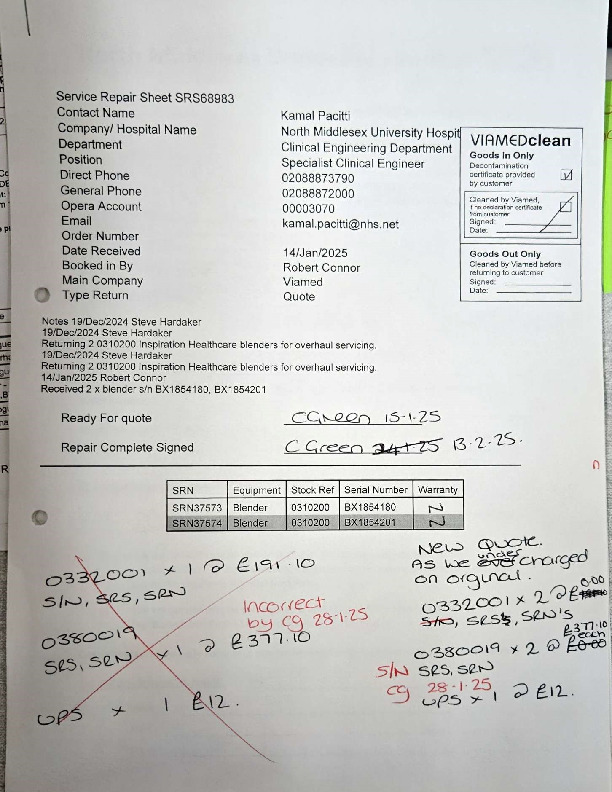 Service Repair Sheet SRS68983
Contact Name Kamal Pacitti
Company/ Hospital Name North Middlesex University Hospit
Department Clinical Engineering Department
Position Specialist Clinical Engineer
Direct Phone 02088873790
General Phone 02088872000
Opera Account 00003070
Email kamal.pacitti@nhs.net
Order Number
Date Received 14/Jan/2025
Booked in By Robert Connor
Main Company Viamed
Type Return Quote
VIAMEDclean
Goods In Only
Decontamination
certificate provided
by customer
Cleaned by Viamed,
if no declaration certificate
from customer
Signed:
Date:
Goods Out Only
Cleaned by Viamed before
returning to customer
Signed:
Date:
Notes 19/Dec/2024 Steve Hardaker
19/Dec/2024 Steve Hardaker
Returning 2 0310200 Inspiration Healthcare blenders for overhaul servicing.
19/Dec/2024 Steve Hardaker
Returning 2 0310200 Inspiration Healthcare blenders for overhaul servicing.
14/Jan/2025 Robert Connor
Received 2 x blender s/n BX1854180, BX1854201
Ready For quote CGreen 15-1-25
Repair Complete Signed C Green 13-2-25.
SRN Equipment Stock Ref Serial Number Warranty
SRN37573 Blender 0310200 BX1854180 N
SRN37574 Blender 0310200 BX1854201 N
0332001 x 1 @ £191.10
S/N, SRS, SRN
Incorrect
by cg 28-1-25
0380019 x 1 @ £377.10
SRS, SRN
UPS x 1 £12.
New Quote.
As we under over charged
on orginal.
0332001 x 2 @ £ 0.00
S/N, SRS's, SRN'S
0380019 x 2 @ £0.00 £377.10 each
S/N SRS, SRN
cg 28-1-25
UPS x 1 @ £12.